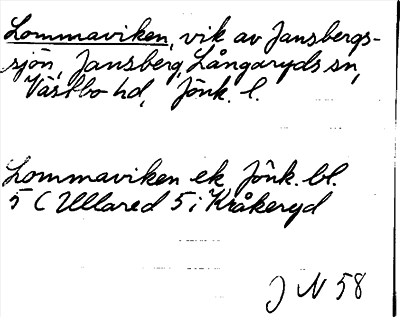 Lommaviken, vik av Jansbergs-
sjön, Jansberg, Långaryds sn,
Västbo hd, Jönk. l.
Lommaviken ek. Jönk. bl.
5 C Ullared 5 i Kråkeryd
J N 58